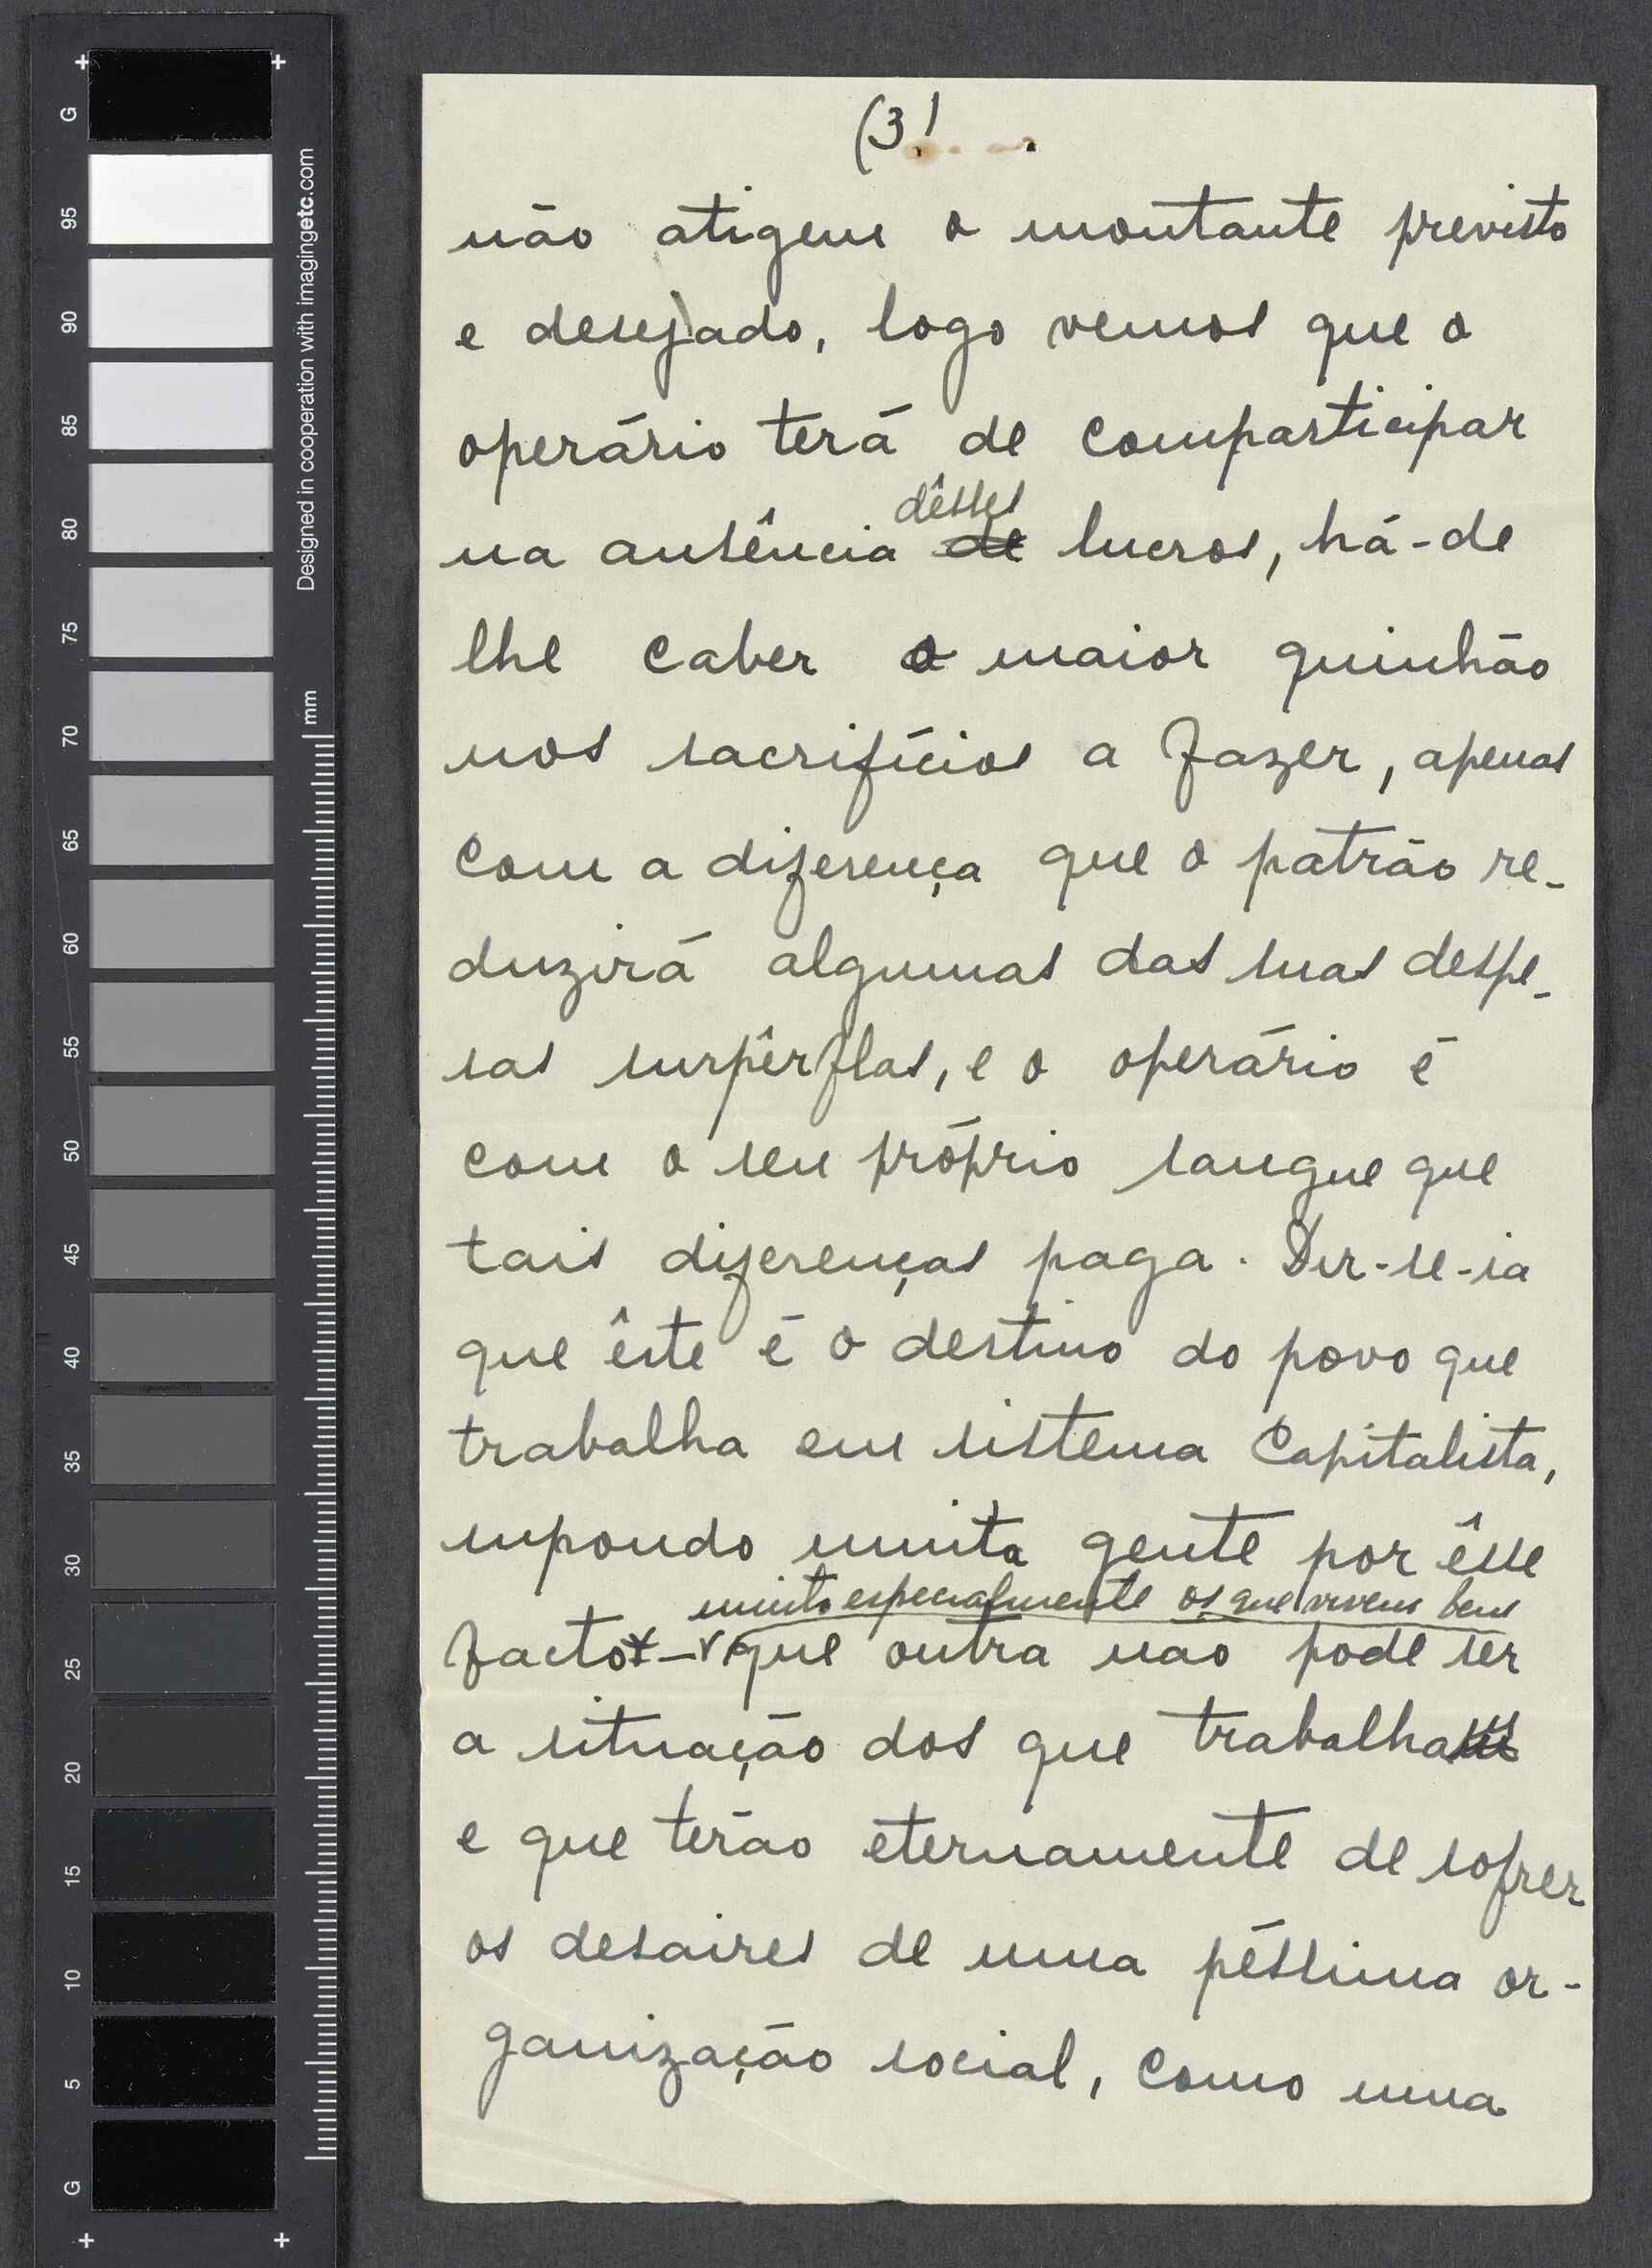 G
95
90
85
80
75
70
65
60
55
50
45
40
35
30
25
20
15
10
5
G
Designed in cooperation with imagingetc.com
mm
(3!
não atigem o montante previsto
e desejado, logo vemos que o
operário terá de comparticipar
dêsses
na ausência de lucros, há-de
lhe caber o maior quinhão
nos sacrifícios a fazer, apenas
com a diferença que o patrão re-
duzirá algumas das suas despe-
sas surpêrflas, e o operário é
com o seu próprio sangue que
tais diferenças paga. Dir-se-ia
que êste é o destino do povo que
trabalha em sistema Capitalista,
supondo muita gente por êsse
muito especialmente os que vivem bem
facto - que outra não pode ser
a situação dos que trabalham
e que terão eternamente de sofrer
os desaires de uma péssima or-
ganização social, como uma